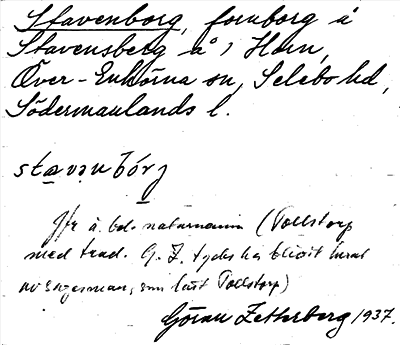 Stavenborg, fornborg å
Stavensberg å i Horn,
Över-Enhörna sn, Selebo hd,
Södermanlands l.
stavənbórj
Jfr å bd. naturnamn (Tollstorp
med trad. G. Z. tycks ha blivit
av sagesman, som läst Tollstorp)
Göran Zetterberg 1937.